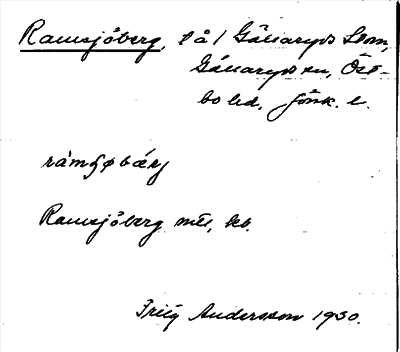 Ramsjöberg, lå 1 Gällaryds Sven,
Gällaryds sn, Öst-
bo hd, Jönk. l.
ràmʃøbærj
Ramsjöberg mtl, kb.
Friig Andersson 1930.